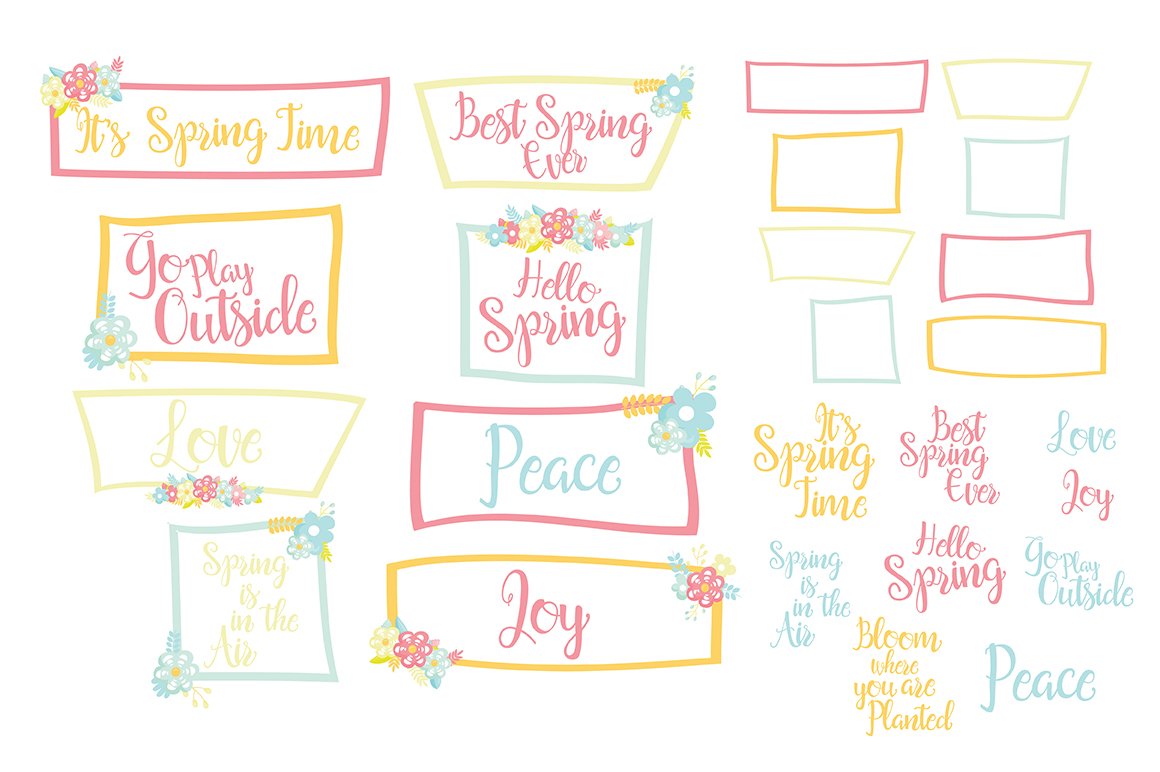 It's Spring Time
Best Spring
Ever
Go Play
Outside
Hello
Spring
Love
Peace
Spring
is
in the
Air
Joy
It's
Spring
Time
Best
Spring
Ever
Love
Joy
Spring
is
in the
Air
Hello
Spring
Go Play
Outside
Bloom
where
you are
Planted
Peace